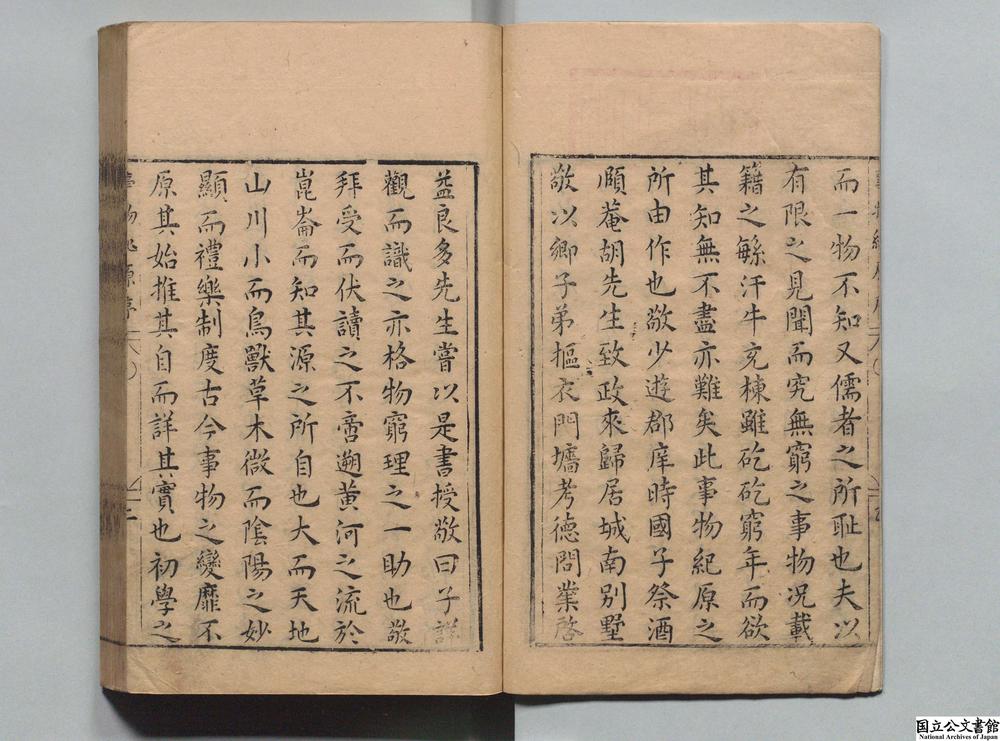 而一物不知又儒者之所耻也夫以
有限之見聞而究無窮之事物况載
籍之緐汗牛充棟雖矻矻窮年而欲
其知無不盡亦難矣此事物紀原之
所由作也敬少遊郡庠時國子祭酒
頥菴胡先生致政來歸居城南别墅
敬以鄉子弟摳衣門墻考德問業啓
益良多先生嘗以是書授敬曰子詳
觀而識之亦格物窮理之一助也敬
拜受而伏讀之不啻遡黄河之流於
崑崙而知其源之所自也大而天地
山川小而鳥獸草木微而陰陽之妙
顯而禮樂制度古今事物之變靡不
原其始推其自而詳其實也初學之
国立公文書館
National Archives of Japan